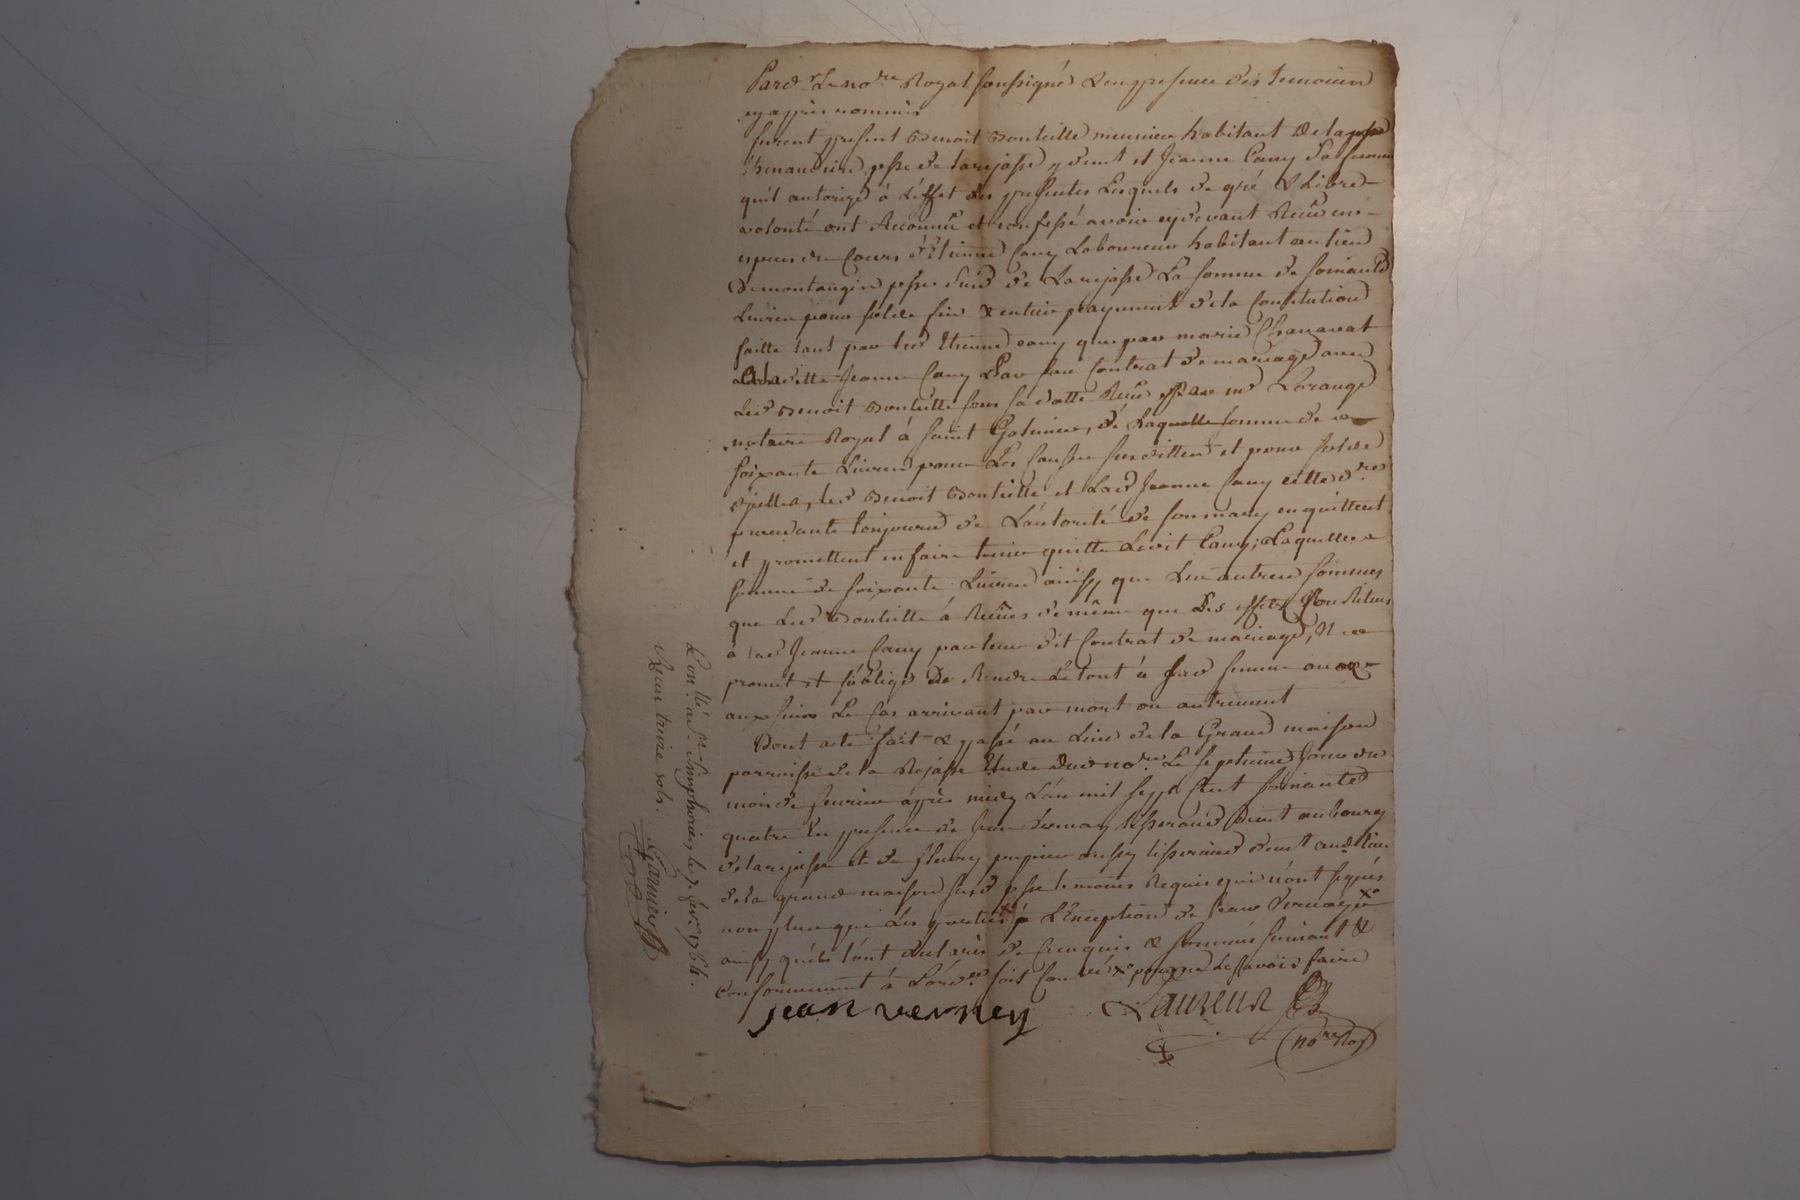 Pard.t Le no.re Royal soussigné & en presence des temoins
cy apprès nommés
furent present Benoit Bouteille meunier habitant de la
psse de Larajasse y dem.t et Jeanne Cany sa femme
quil autorize à L'effet des presentes Lesquels de gré & Libre
volonté ont Reconnu et confessé avoir cy devant Reçu en
espues de Cours d'Etienne Cany Laboureur habitant au lieu
de montaugin psse susd de Larajasse La somme de soixante
Livres pour solde fin & entier payement de la Constitution
faitte tant par led Etienne Cany que par marie Chanavat
à laditte Jeanne Cany Par son Contrat de mariage avec
Led Benoit Bouteille sous sa datte Reçu par m.e Lorange
notaire Royal à Saint Galmier, de Laquelle somme de
soixante Livres pour Les Causes susdittes et pour solde
d'icelles, led Benoit Bouteille et Lad Jeanne Cany
procedante toujours de L'autorité de son mary en quittent
et promettent en faire tenir quitte Ledit Cany; Laquelle
somme de soixante Livres ainsy que Les autres sommes
que Led Bouteille à Reçües de même que Les effets
à lad Jeanne Cany par leur dit Contrat de mariage, Il
promet et s'oblige De Rendre Le tout à sad femme ou
aux siens Le Cas arrivant par mort ou autrement
Dont acte fait & passé au Lieu de la Grand maison
parroisse de la Rajasse Etude dud no.re Le septieme Jour du
mois de fevrier après midy L'an mil sept Cent soixante
quatre En presence de Jean Vernay tisserand Dem.t au bourg
de larajasse et de fleury aussy tisserand dem.t aud lieu
de la grand maison susd psse temoins Requis qui n'ont signés
non plus que Les parties à L'Exception de Jean Vernay
ainsy qu'ils l'ont declarés de ce enquis & sommés suivant &
conformement à L'ord.ce soit Con.llé pour ne Le savoir faire
jean verney Laureur
no.re Roy
Con.llé a S.t Simphorien le 7 fev.r 1764.
Reçu treize sols. Garnier